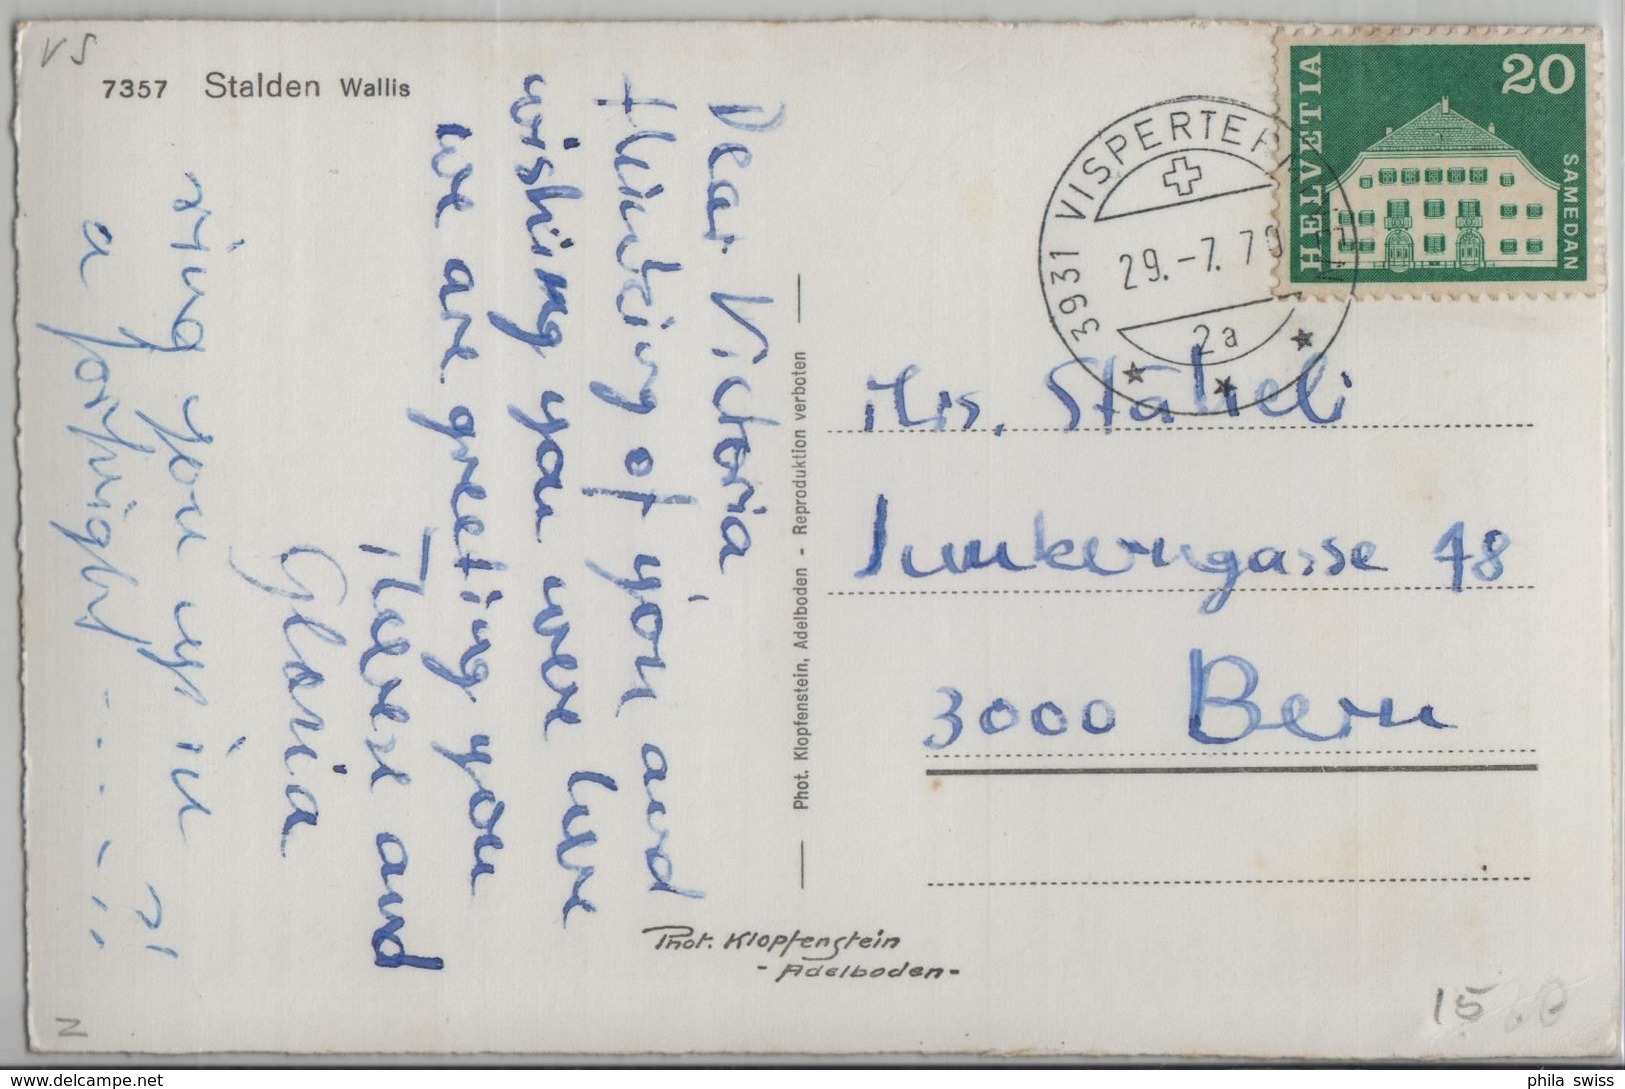 VS
7357 Stalden Wallis
Dear Victoria
thinking of you and
wishing you were here
we are greeting you
Therese and
Gloria
ring you up in
a fortnight - . - . - . .
Phot. Klopfenstein, Adelboden - Reproduktion verboten
Phot. Klopfenstein
- Adelboden -
HELVETIA
20
SAMEDAN
3931 VISPERTERMINEN
29.-7.70
2a
Mrs. Stäheli
Junkerngasse 48
3000 Bern
N
15
phila swiss